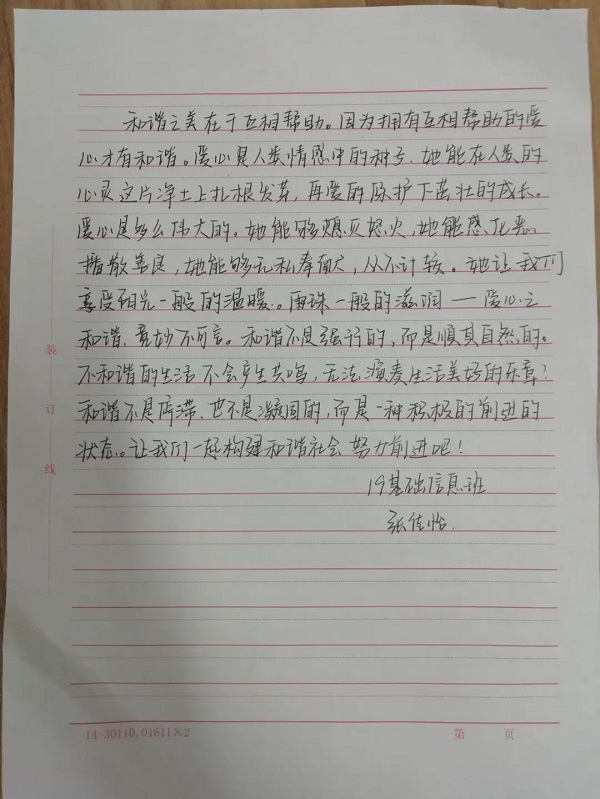 和谐之美在于互相帮助。因为拥有互相帮助的爱
心才有和谐。爱心是人类情感中的种子，她能在人类的
心灵这片净土上扎根发芽，再爱的际护下茁壮的成长。
爱心是多么伟大的。她能够熄灭怒火，她能感化恶
播散善良，她能够无私奉献，从不计较。她让我们
享受阳光一般的温暖。雨珠一般的滋润——爱心之
和谐、意妙不可言。和谐不是强行的，而是顺其自然的。
不和谐的生活不会产生共鸣，无法演奏生活美好的乐章！
和谐不是停滞、也不是凝固的，而是一种积极的前进的
状态。让我们一起构建和谐社会努力前进吧！
19基础信息班
张佳怡.
装
订
线
14-30110.01611×2
第 页